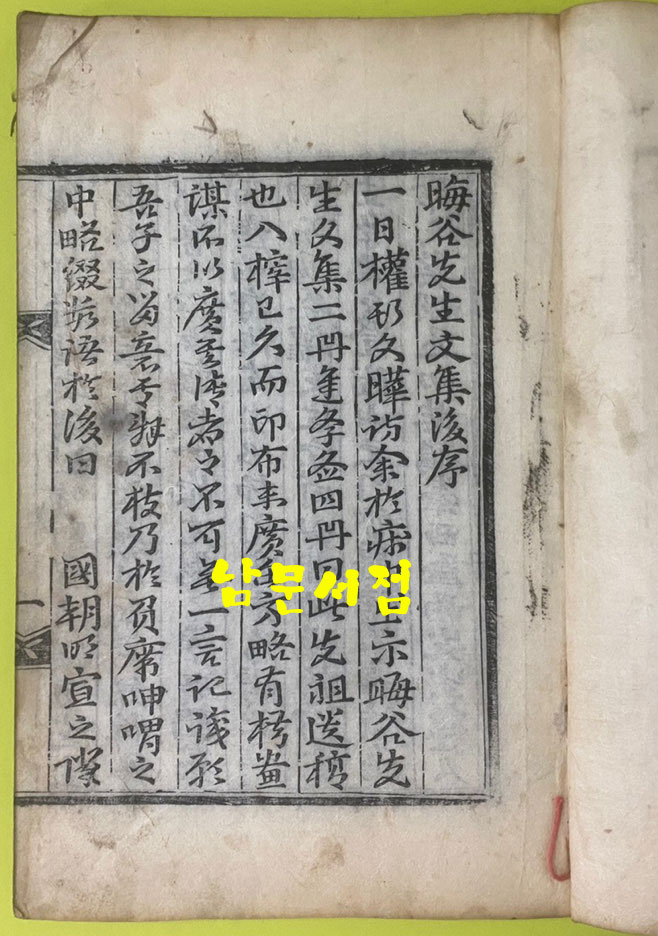 晦谷先生文集後序
一日權斯文曄訪余於示晦谷先
生文集二冊四冊曰此先祖遺稿
也入梓已久而印布未廣方略有
謀所以廣其傳者不可無一言記識願
吾子之留意不乃於席呻喟之
中略綴數語於後曰 國朝明宣之際
一
남문서점